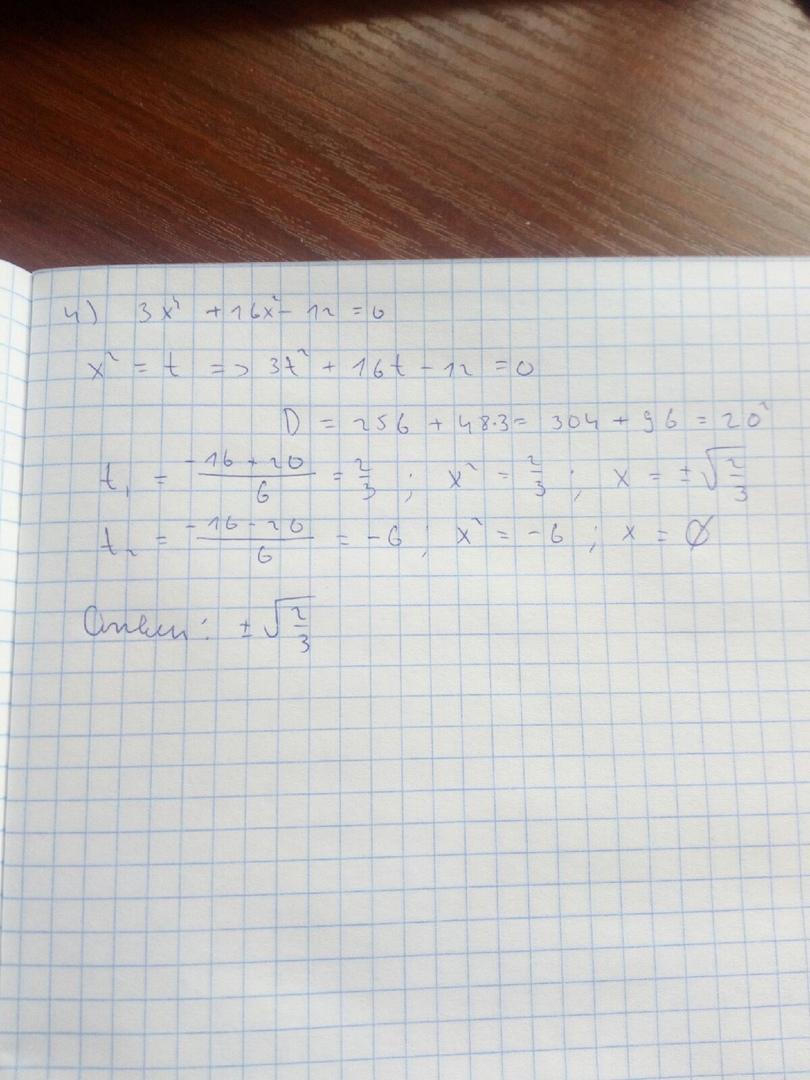 4) 3x⁴ + 16x² - 12 = 0
x² = t => 3t² + 16t - 12 = 0
D = 256 + 48·3 = 304 + 96 = 20²
t₁ = \frac{-16 + 20}{6} = \frac{2}{3} ; x² = \frac{2}{3} ; x = ±\sqrt{\frac{2}{3}}
t₂ = \frac{-16 - 20}{6} = -6 ; x² = -6 ; x = ∅
Ответ: ±\sqrt{\frac{2}{3}}